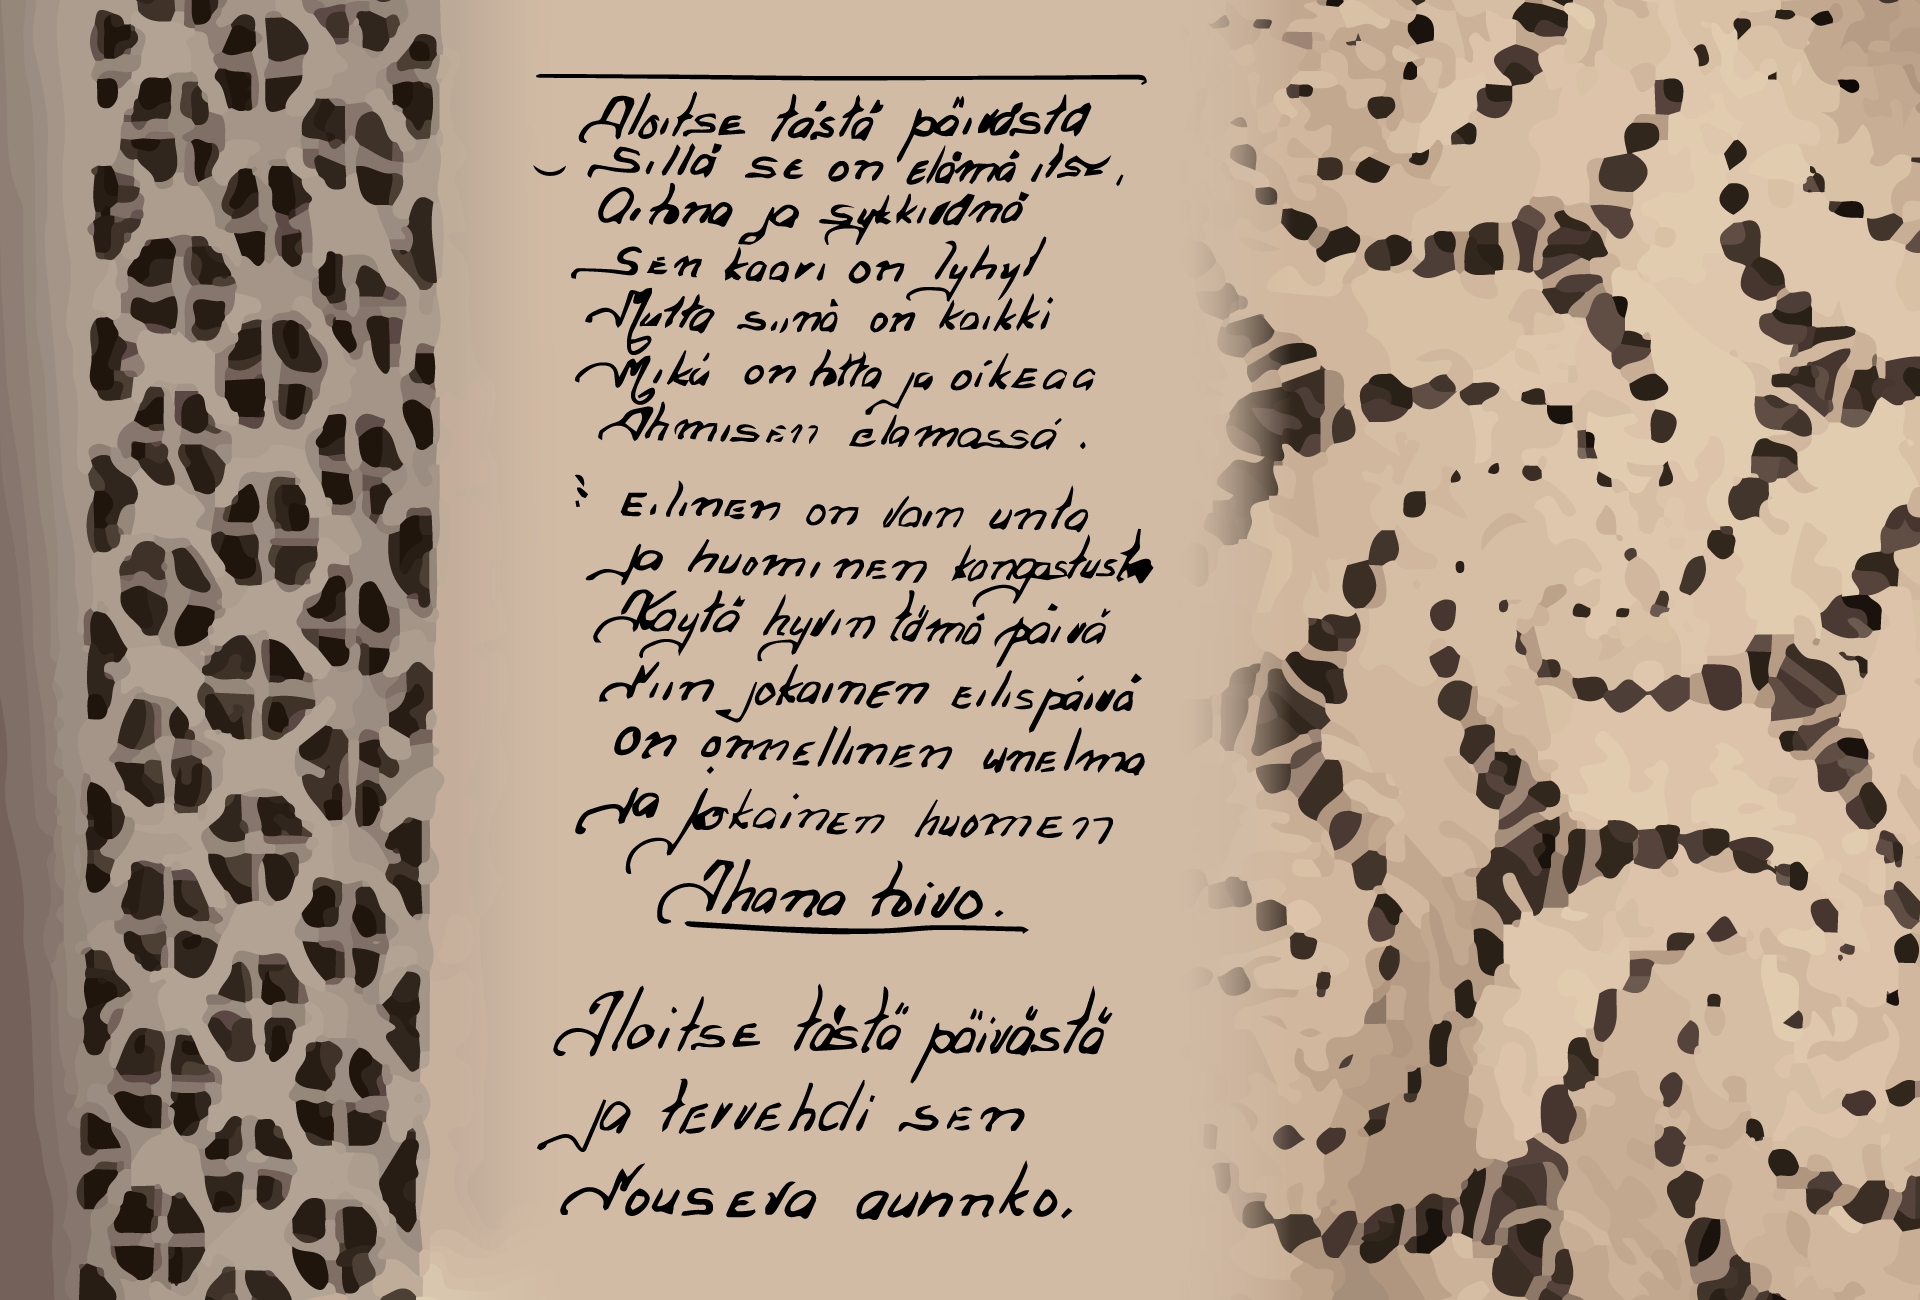 Aloitse tästä päivästä
Sillä se on elämä itse,
Aitona ja sykkivänä
Sen kaari on lyhyt
Mutta siinä on kaikki
Mikä on totta ja oikeaa
Ihmisen elämässä.
Eilinen on vain unta
ja huominen kangastusta
Käytä hyvin tämä päivä
Niin jokainen eilispäivä
on onnellinen unelma
Ja jokainen huomen
Ihana toivo.
Aloitse tästä päivästä
ja tervehdi sen
Nouseva aurinko.